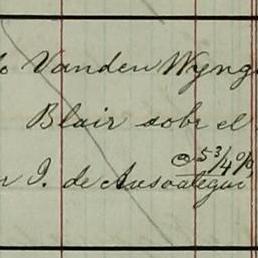 Vanden Wyng
Blair sobre el
@ 5 3/4 %
I. de Ansoategui